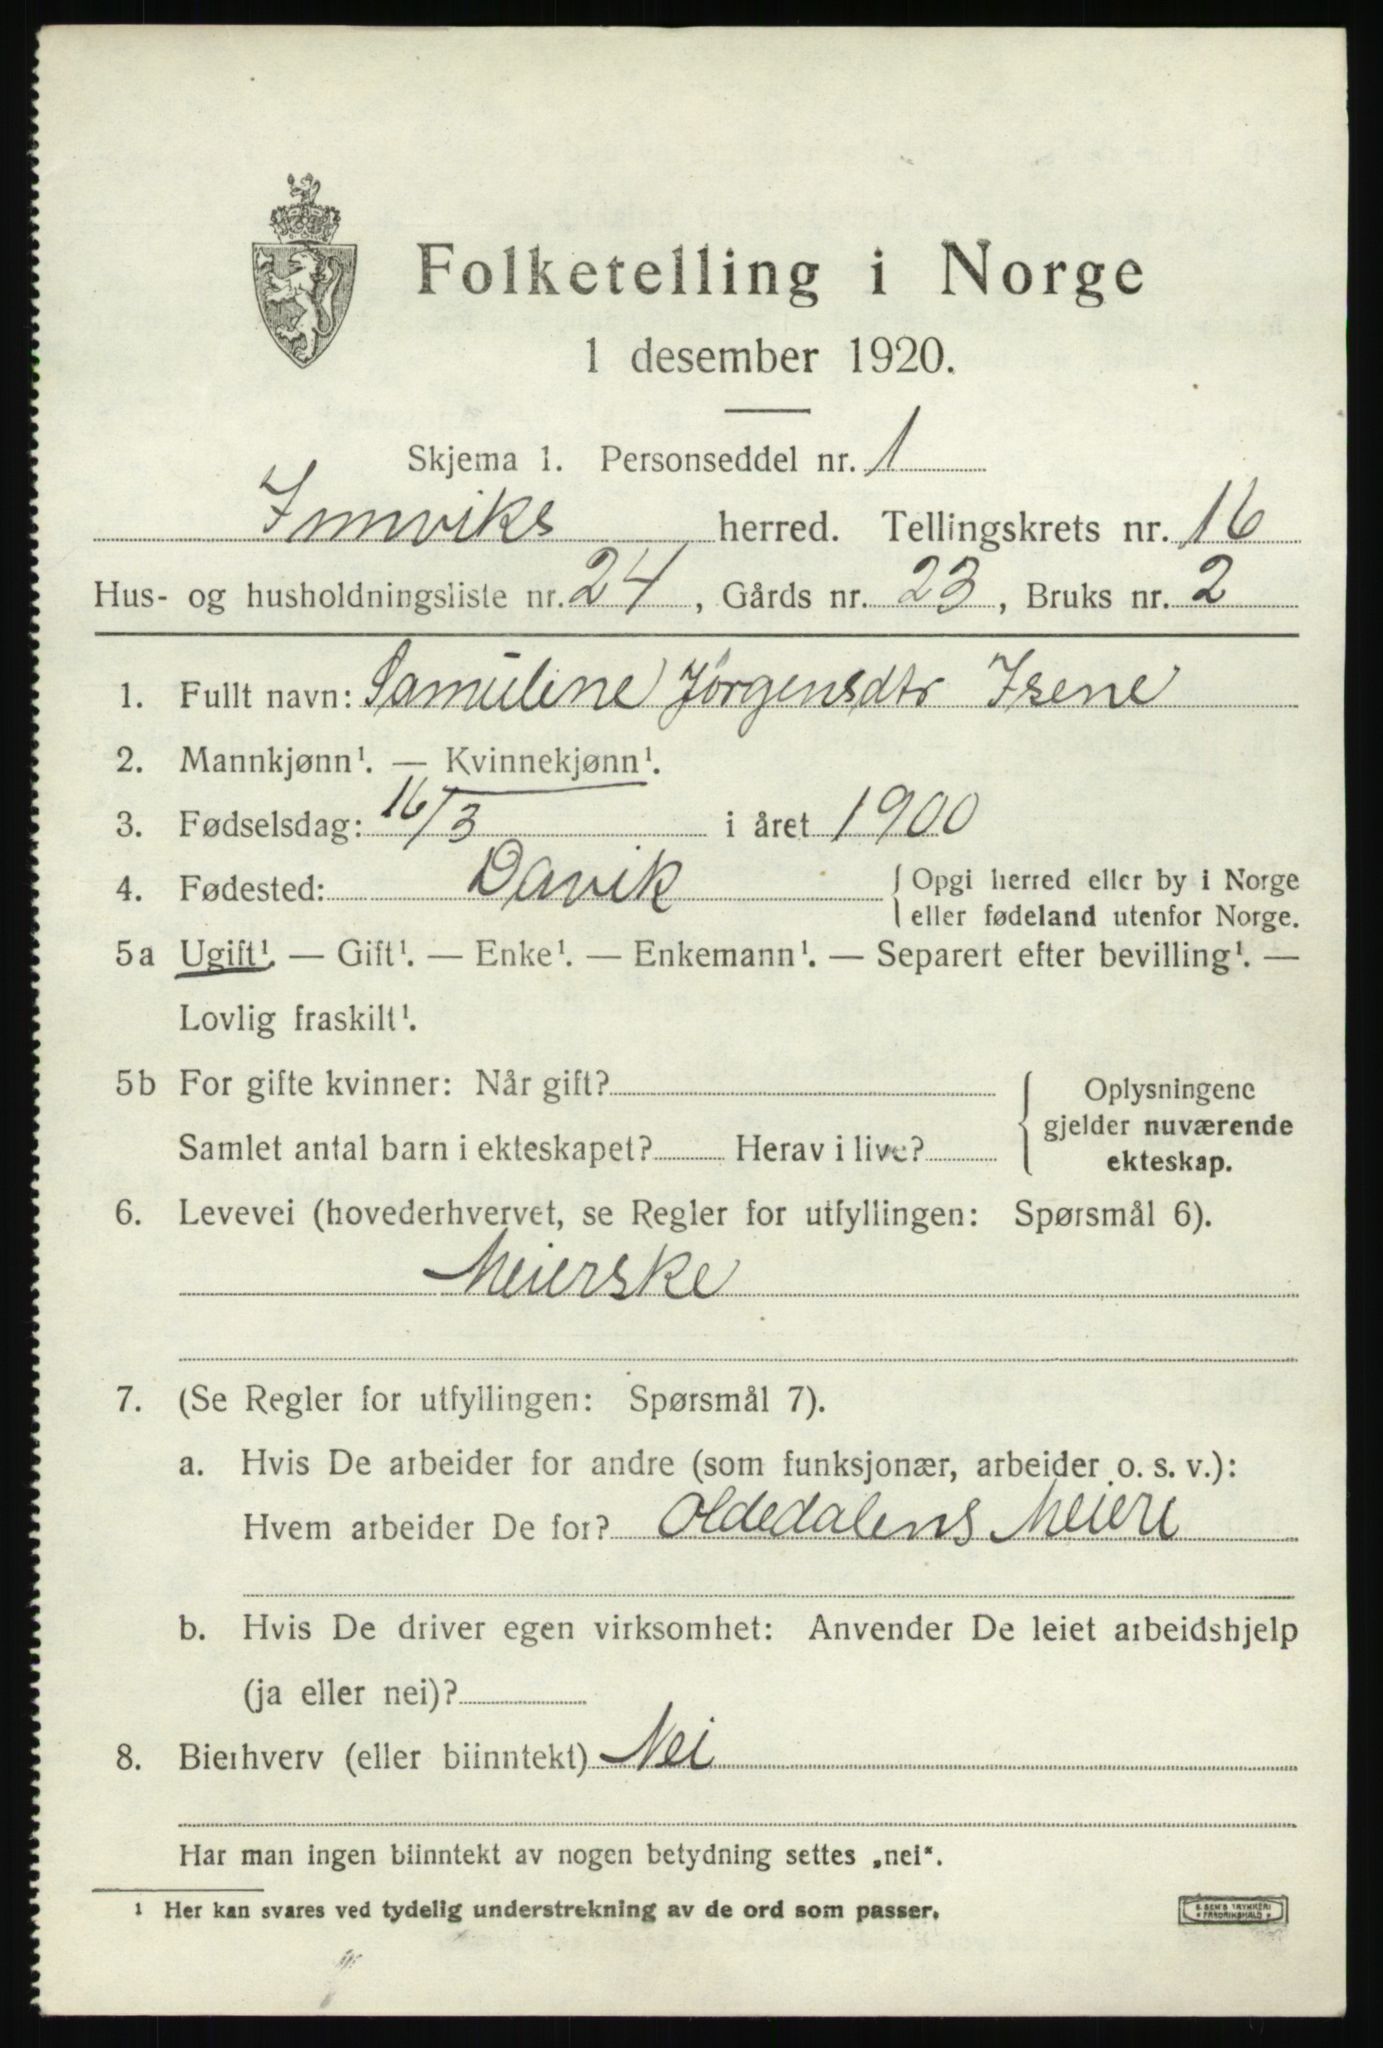 Folketelling i Norge
1 desember 1920.
Skjema 1. Personseddel nr. 1
Innviks herred. Tellingskrets nr. 16
Hus- og husholdningsliste nr. 24, Gårds nr. 23, Bruks nr. 2
1. Fullt navn: Samuline Jørgensdtr Isene
2. Mannkjønn¹. — Kvinnekjønn¹.
3. Fødselsdag: 16/3 i året 1900
4. Fødested: Davik { Opgi herred eller by i Norge
eller fødeland utenfor Norge.
5a Ugift¹. — Gift¹. — Enke¹. — Enkemann¹. — Separert efter bevilling¹. —
Lovlig fraskilt¹.
5b For gifte kvinner: Når gift?
Samlet antal barn i ekteskapet? Herav i live?
{ Oplysningene
gjelder nuværende
ekteskap.
6. Levevei (hovederhvervet, se Regler for utfyllingen: Spørsmål 6).
Meierske
7. (Se Regler for utfyllingen: Spørsmål 7).
a. Hvis De arbeider for andre (som funksjonær, arbeider o. s. v.):
Hvem arbeider De for? Oldedalens Meieri
b. Hvis De driver egen virksomhet: Anvender De leiet arbeidshjelp
(ja eller nei)?
8. Bierhverv (eller biinntekt) Nei
Har man ingen biinntekt av nogen betydning settes „nei“.
¹ Her kan svares ved tydelig understrekning av de ord som passer.